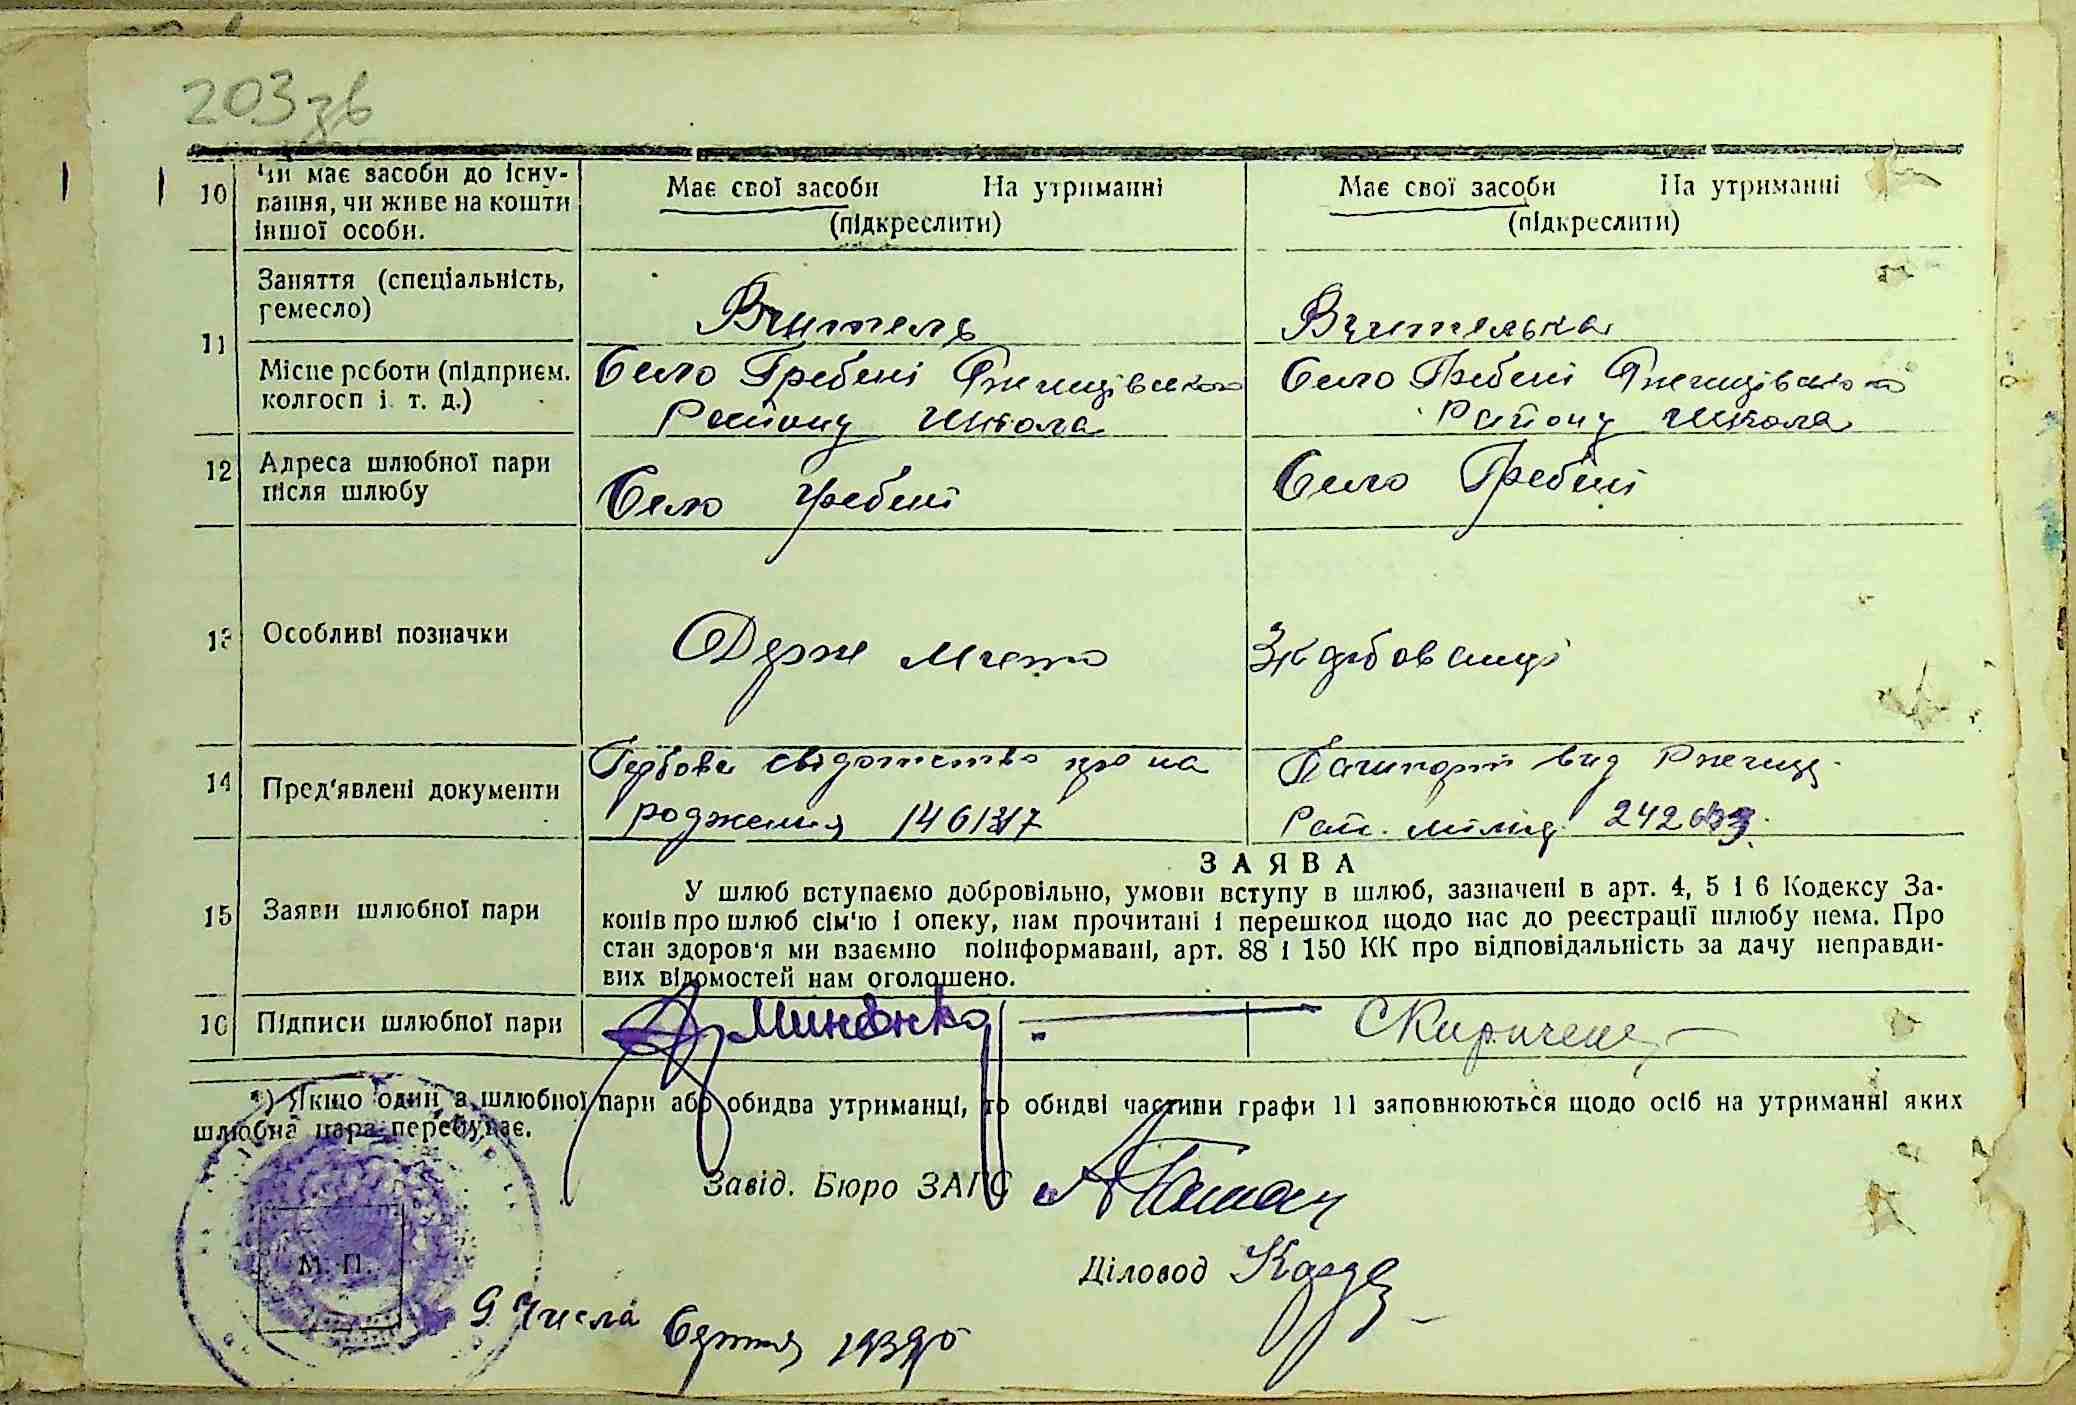 203 зв
10 Чи має засоби до існу-
вання, чи живе на кошти
іншої особи.
Має свої засоби На утриманні
(підкреслити)
Має свої засоби На утриманні
(підкреслити)
11 Заняття (спеціальність,
ремесло)
Вчитель
Вчителька
Місце роботи (підприєм.
колгосп і. т. д.)
Село Гребені Ржищівського
Району Школа
Село Гребені Ржищівського
Району Школа
12 Адреса шлюбної пари
після шлюбу
Село Гребені
Село Гребені
13 Особливі позначки
Держ мито
14 Пред'явлені документи
Гербове свідотство про на
родження
Пашпорт вид Ржищ.
Рай. міліц.
15 Заяви шлюбної пари
ЗАЯВА
У шлюб вступаємо добровільно, умови вступу в шлюб, зазначені в арт. 4, 5 і 6 Кодексу За-
конів про шлюб сім'ю і опеку, нам прочитані і перешкод щодо нас до реєстрації шлюбу нема. Про
стан здоров'я ми взаємно поінформавані, арт. 88 і 150 КК про відповідальність за дачу неправди-
вих відомостей нам оголошено.
16 Підписи шлюбної пари
Миненко
СКириченк
*) Якщо один з шлюбної пари або обидва утриманці, то обидві частини графи 11 заповнюються щодо осіб на утриманні яких
шлюбна пара перебуває.
Завід. Бюро ЗАГС
Діловод
М. П.
9 Числа Серпня